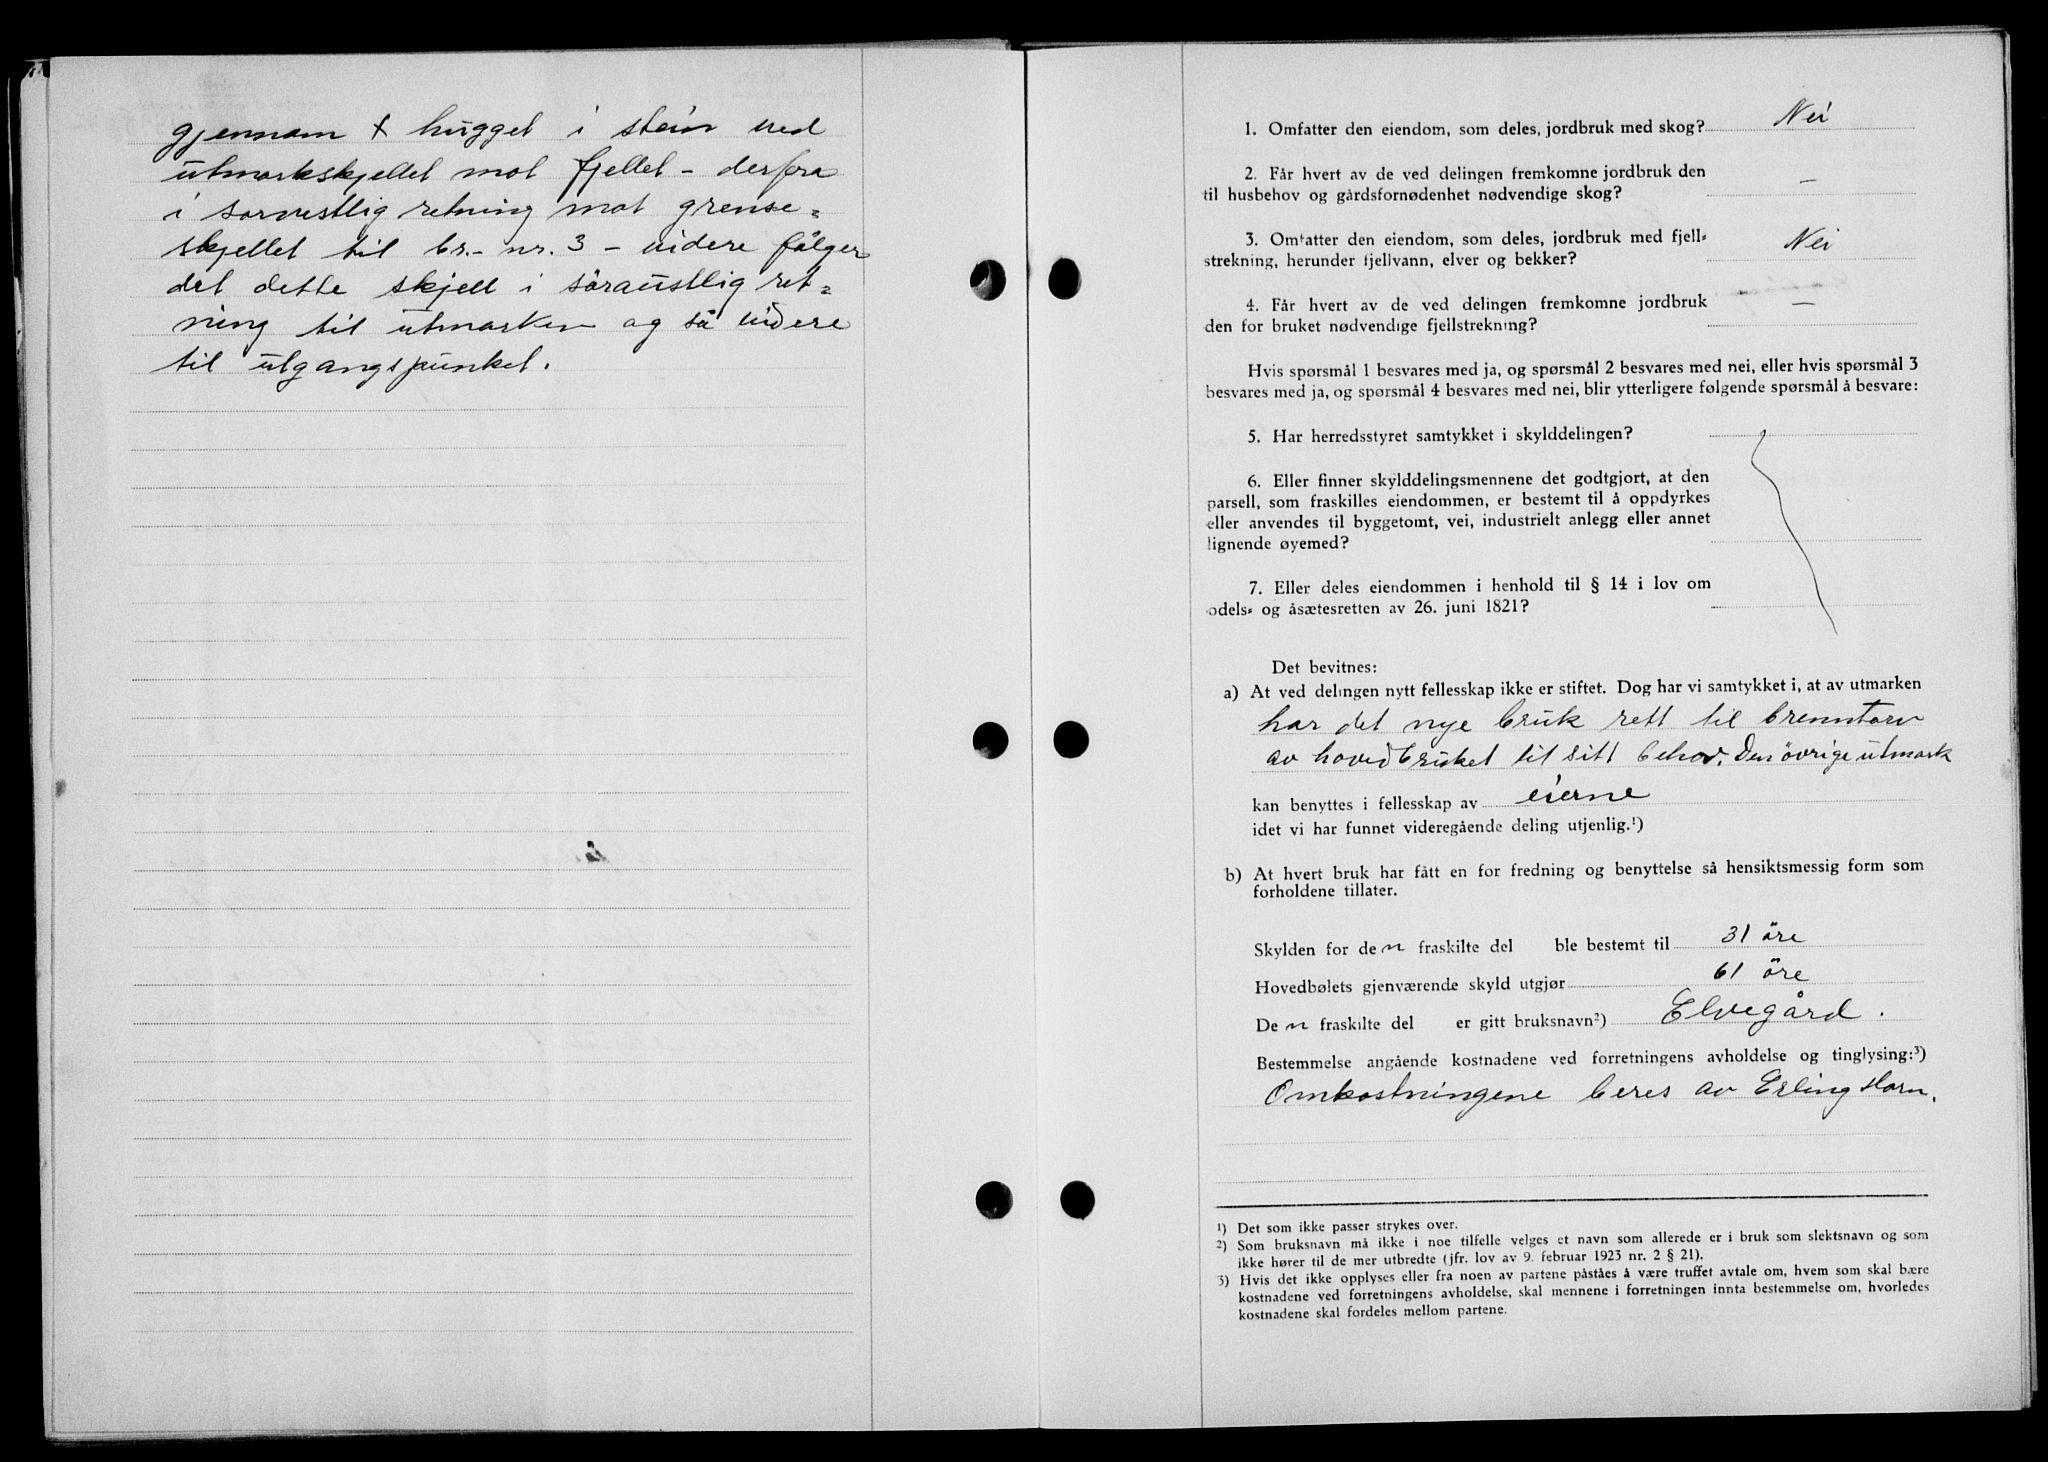 gjennom + hugget i stein ved
utmarkskjellet mot fjellet - derfra
i sørvestlig retning mot grense-
skjellet til br.- nr. 3 - videre følger
det dette skjell i söraustlig ret-
ning til utmarken og så videre
til utgangspunket.
1. Omfatter den eiendom, som deles, jordbruk med skog? Nei
2. Får hvert av de ved delingen fremkomne jordbruk den
til husbehov og gårdsfornødenhet nødvendige skog? —
3. Omfatter den eiendom, som deles, jordbruk med fjell-
strekning, herunder fjellvann, elver og bekker? Nei
4. Får hvert av de ved delingen fremkomne jordbruk
den for bruket nødvendige fjellstrekning? —
Hvis spørsmål 1 besvares med ja, og spørsmål 2 besvares med nei, eller hvis spørsmål 3
besvares med ja, og spørsmål 4 besvares med nei, blir ytterligere følgende spørsmål å besvare:
5. Har herredsstyret samtykket i skylddelingen?
6. Eller finner skylddelingsmennene det godtgjort, at den
parsell, som fraskilles eiendommen, er bestemt til å oppdyrkes
eller anvendes til byggetomt, vei, industrielt anlegg eller annet
lignende øyemed?
7. Eller deles eiendommen i henhold til § 14 i lov om
odels- og åsætesretten av 26. juni 1821?
Det bevitnes:
a) At ved delingen nytt fellesskap ikke er stiftet. Dog har vi samtykket i, at av utmarken
har det nye bruk rett til brenntorv
av hovedbruket til sitt behov. Den övrige utmark
kan benyttes i fellesskap av eierne
idet vi har funnet videregående deling utjenlig.¹)
b) At hvert bruk har fått en for fredning og benyttelse så hensiktsmessig form som
forholdene tillater.
Skylden for den fraskilte del ble bestemt til 31 öre
Hovedbølets gjenværende skyld utgjør 61 öre
Den fraskilte del er gitt bruksnavn²) Elvegård.
Bestemmelse angående kostnadene ved forretningens avholdelse og tinglysing:³)
Omkostningene beres av Erling Horn.
¹) Det som ikke passer strykes over.
²) Som bruksnavn må ikke i noe tilfelle velges et navn som allerede er i bruk som slektsnavn og som
ikke hører til de mer utbredte (jfr. lov av 9. februar 1923 nr. 2 § 21).
³) Hvis det ikke opplyses eller fra noen av partene påståes å være truffet avtale om, hvem som skal bære
kostnadene ved forretningens avholdelse, skal mennene i forretningen innta bestemmelse om, hvorledes
kostnadene skal fordeles mellom partene.